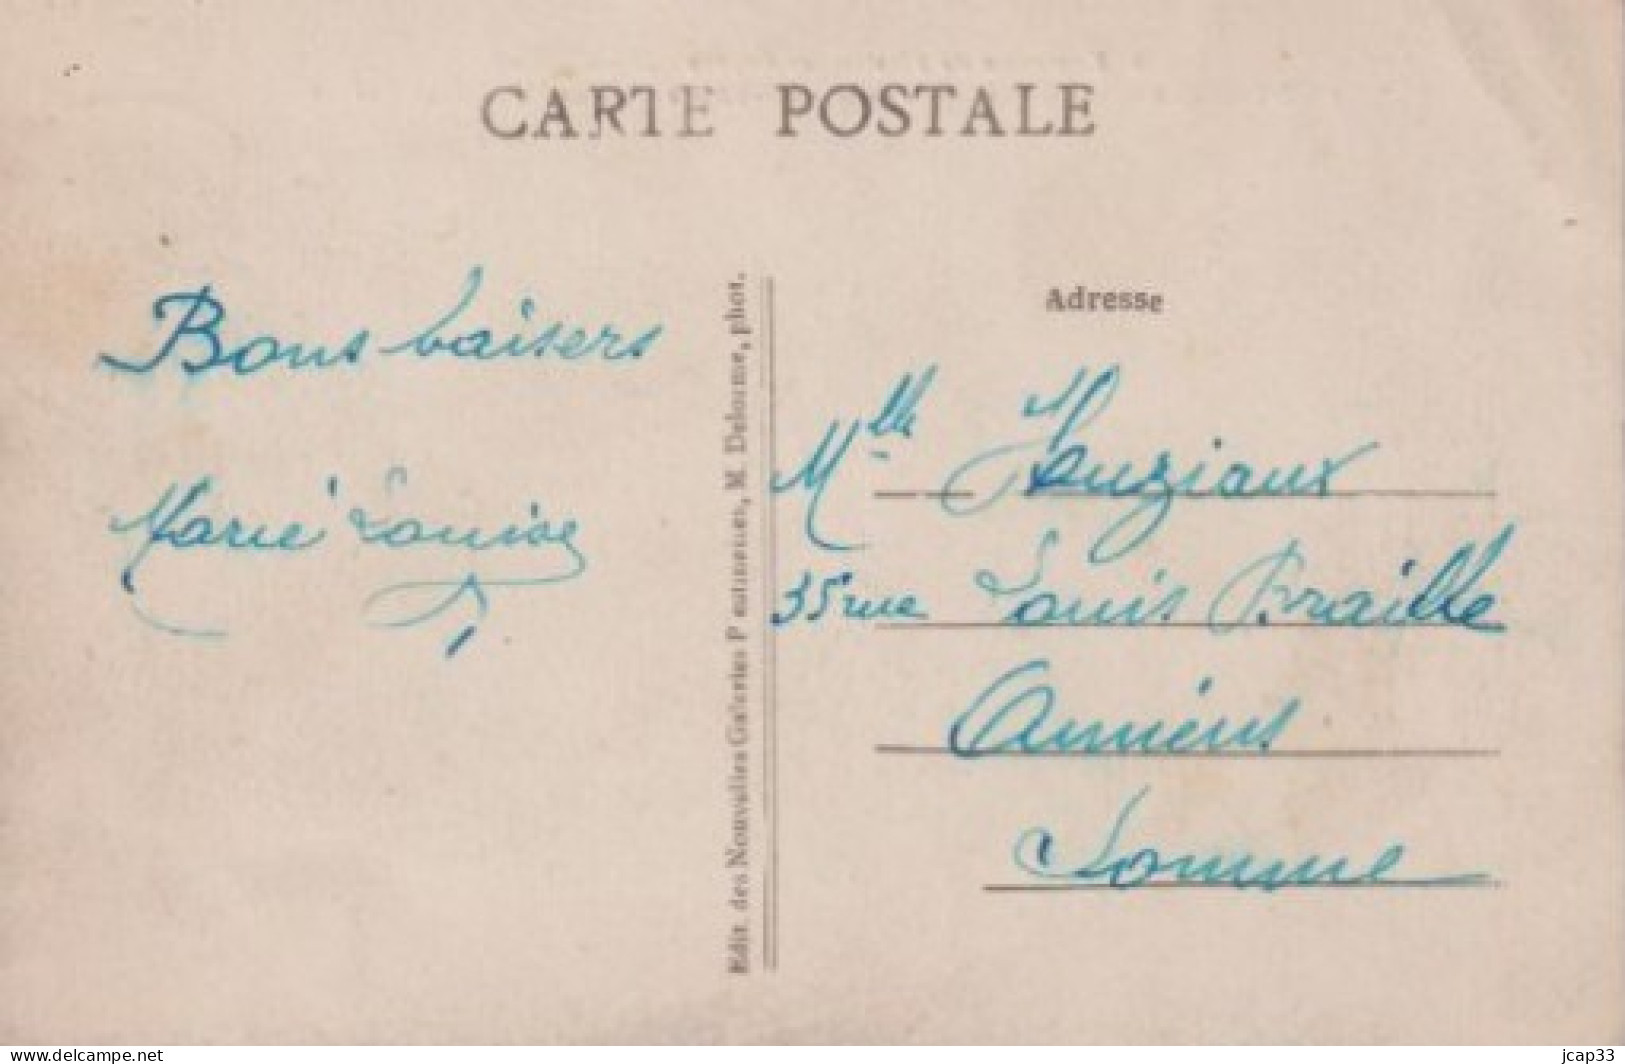 CARTE POSTALE
Bons baisers
Marie Louise
Edit. des Nouvelles Galeries Parisiennes, M. Delorme, phot.
Adresse
Mlle Houziaux
35 rue Louis Braille
Amiens
Somme
www.delcampe.net
jcap33